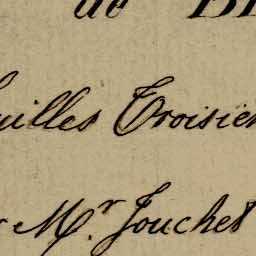 de
uilles Troisiem
Mr. Jouchet